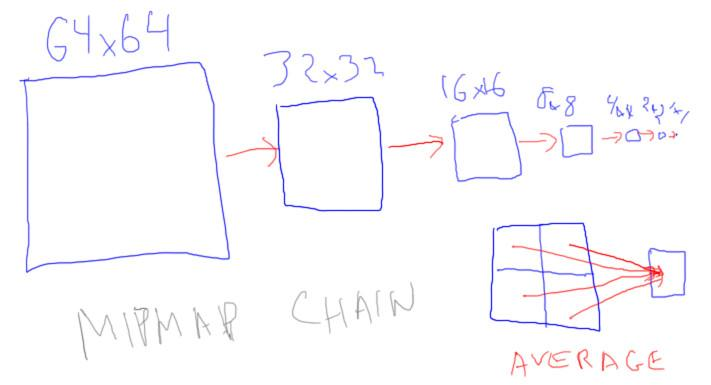 64x64
32x32
16x16
8x8
4x4
2x2
1x1
MIPMAP CHAIN
AVERAGE